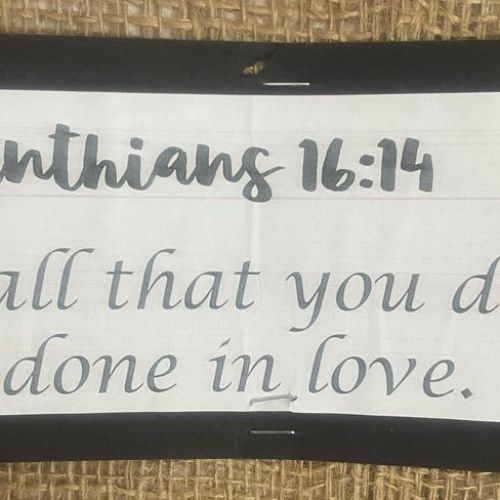 inthians 16:14
all that you d
done in love.